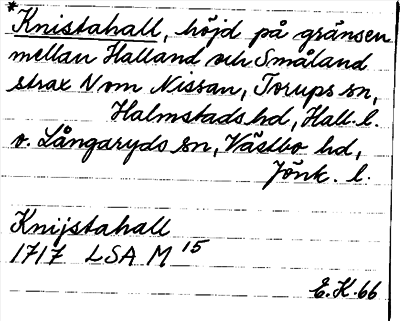 *Knistahall, höjd på gränsen
mellan Halland och Småland
strax N om Nissan, Torups sn,
Halmstads hd, Hall. l.
o. Långaryds sn, Västbo hd,
Jönk. l.
Knijstahall
1717 LSA M 15
E.K. 66